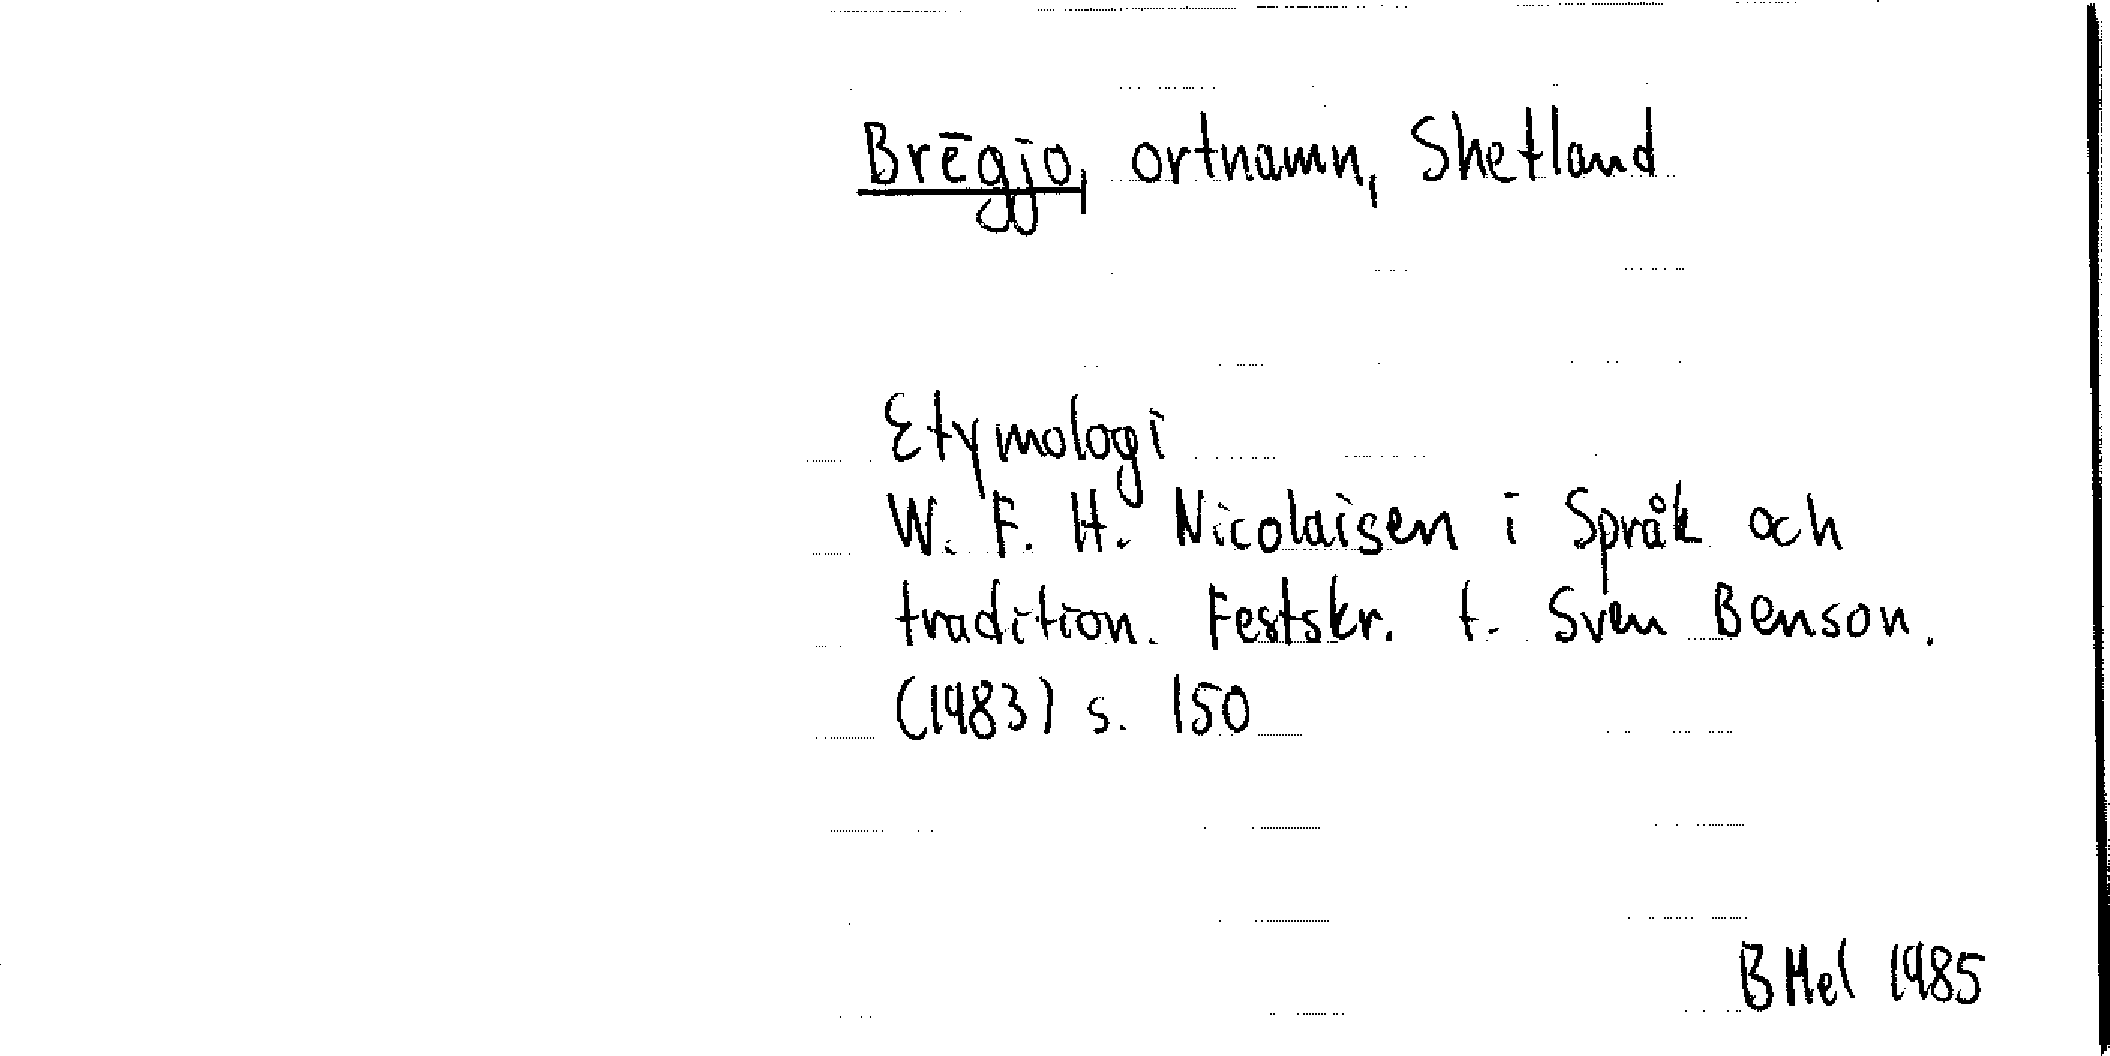 Brēgjo, ortnamn, Shetland
Etymologi
W. F. H. Nicolaisen i Språk och
tradition. Festskr. t. Sven Benson.
(1983) s. 150
B Hel 1985